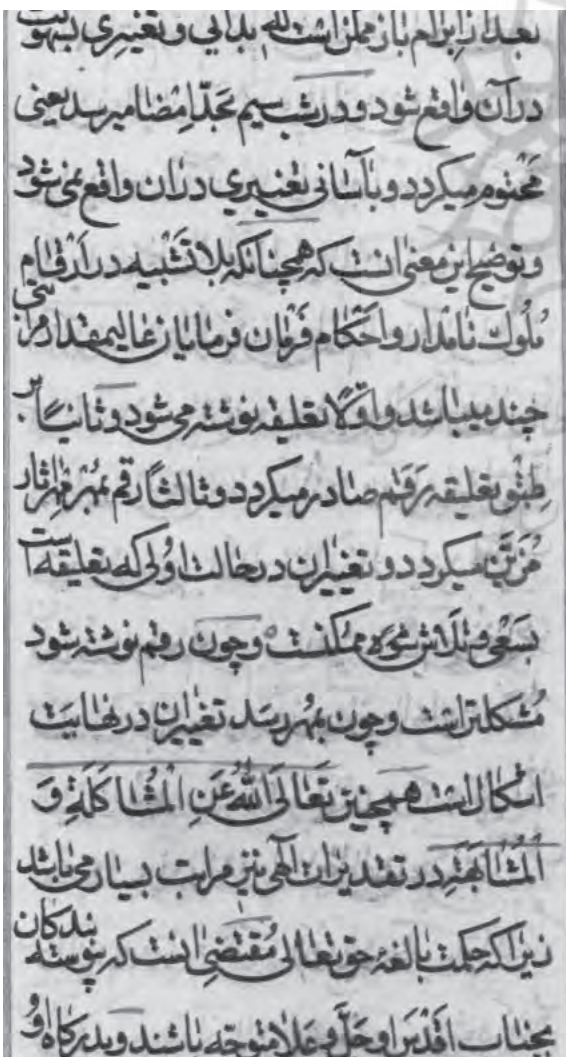 بعد از ابرام باز ممکن است لله بدائی و تغییری بسهولت
در آن واقع شود و در شب سیم بحد امضا میرسد یعنی
محتوم میکردد و بآسانی تغییری در ان واقع نمی شود
و توضیح این معنی انست که همچنانکه بلا تشبیه در ارقام
ملوک نامدار و احکام فرمان فرمایان عالیمقدار مراتبی
چند میباشد و اوّلا تعلیقه نوشته می شود و ثانیاً بر
طبق تعلیقه رقم صادر میکردد و ثالثاً رقم بمهر مهر اثار
مزیّن میکردد و تغییر ان در حالت اولی که تعلیقه است
بسعی و تلاش ممکنست و چون رقم نوشته شود
مشکلتر است و چون بمهر رسد تغییر ان در نهایت
اشکال است همچنین تعالی اللّه عن المشاکلة و
المشابهة در تقدیرات الهی نیز مراتب بسیار می باشد
زیرا که حکمت بالغهٔ حق تعالی مقتضی انست که پیوسته بندکان
بجناب اقدس او جلّ و علا متوجه باشند و بدرکاه او